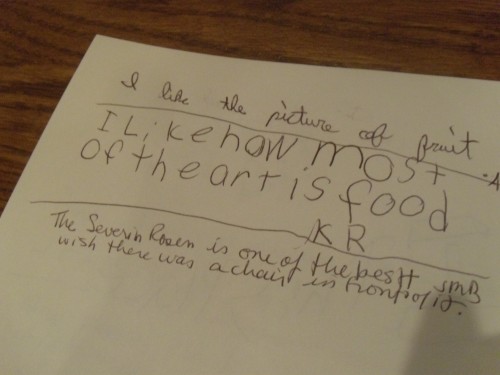 I like the picture of fruit
-A
I Like how most
of the art is food
KR
The Severin Rosen is one of the best I
wish there was a chair in front of it.
JMB